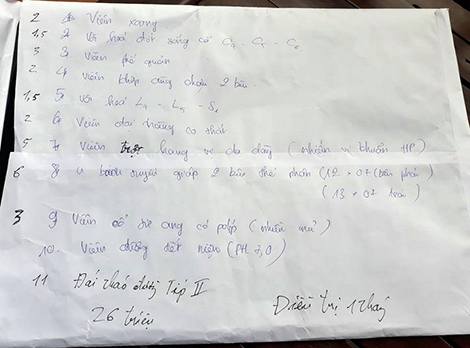 2 1 Viên xoang
1,5 2 Vôi hoá đốt sống cổ C3 - C5 - C6
3 3 Viên phế quản
2 4 Viên khớp cùng chậu 2 bên
1,5 5 Vôi hoá L4 - L5 - S1
2 6 Viên đại tràng co thắt
5 7 Viên hang vị dạ dày (nhiễm vi khuẩn HP)
6 8 U bướu tuyến giáp 2 bên thể phân (12 × 07 (bên phải)
(13 × 07 trái)
3 9 Viên cổ tử cung có polip (nhiễm mủ)
10. Viên đường tiết niệu (PH 7,0)
11 Đái tháo đường Tip II
26 triệu
Điều trị 1 tháng